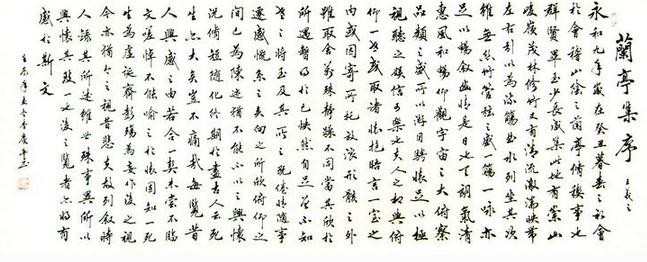 蘭亭集序
王羲之
永和九年歲在癸丑暮春之初會
於會稽山陰之蘭亭脩稧事也
群賢畢至少長咸集此地有崇山
峻嶺茂林修竹又有清流激湍映帶
左右引以為流觴曲水列坐其次
雖無絲竹管弦之盛一觴一詠亦
足以暢敘幽情是日也天朗氣清
惠風和暢仰觀宇宙之大俯察
品類之盛所以遊目騁懷足以極
視聽之娛信可樂也夫人之相與俯
仰一世或取諸懷抱晤言一室之
內或因寄所託放浪形骸之外
雖取舍萬殊靜躁不同當其欣於
所遇暫得於己快然自足不知
老之將至及其所之既倦情隨事
遷感慨系之矣向之所欣俯仰之
間已為陳迹猶不能不以之興懷
況脩短隨化終期於盡古人云死
生亦大矣豈不痛哉每覽昔
人興感之由若合一契未嘗不臨
文嗟悼不能喻之於懷固知一死
生為虛誕齊彭殤為妄作後之視
今亦猶今之視昔悲夫故列敘時
人錄其所述雖世殊事異所以
興懷其致一也後之覽者亦將有
感於斯文